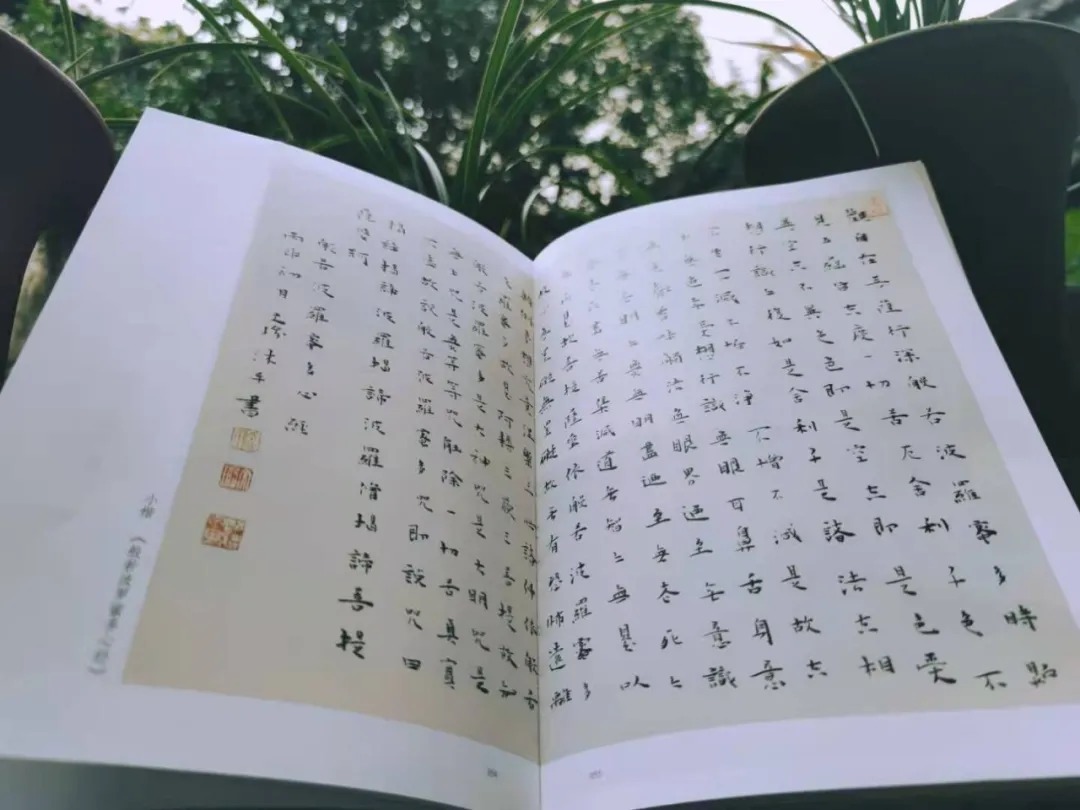 觀自在菩薩行深般若波羅蜜多時照
見五蘊皆空度一切苦厄舍利子色不
異空空不異色色即是空空即是色受
想行識亦復如是舍利子是諸法空相
不生不滅不垢不淨不增不減是故空
中無色無受想行識無眼耳鼻舌身意
無色聲香味觸法無眼界迺至無意識
無無明亦無無明盡迺至無老死亦
無苦集滅道無智亦無得以
無所得故菩提薩埵依般若波羅蜜多
故心無罣礙無罣礙故無有恐怖遠離
顛倒夢想究竟涅槃三世諸佛依般若
羅蜜多故得阿耨三藐三菩提故知
般若波羅蜜多是大神咒是大明咒是
無上咒是無等等咒能除一切苦真實
不虛故說般若波羅蜜多咒即說咒曰
揭諦揭諦波羅揭諦波羅僧揭諦菩提
薩婆訶
般若波羅蜜多心經
丙申初日沐手書
小楷《般若波羅蜜多心經》